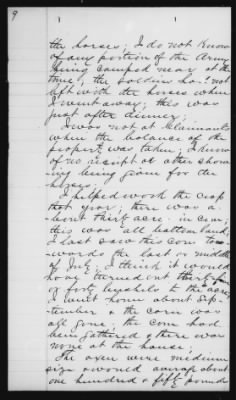 9
the horses; I do not know
of any portion of the Army
being camped near at the
time, the soldiers had not
left with the horses when
I went away; this was
just after dinner.
I was not at Claimants
when the balance of the
property was taken; I know
of no receipt or other
being given for the
horses;
I helped work the crop
that year; there was a-
bout thirty acres in corn;
this was all bottom land;
I last saw this corn to-
wards the last or middle
of July; I think it would
have turned out
or forty bushels to the acre;
I went home about Sep-
tember & the corn was
all gone; the corn had
been gathered & there was
none at the house;
The oxen were medium
size & would average about
one hundred & fifty pounds